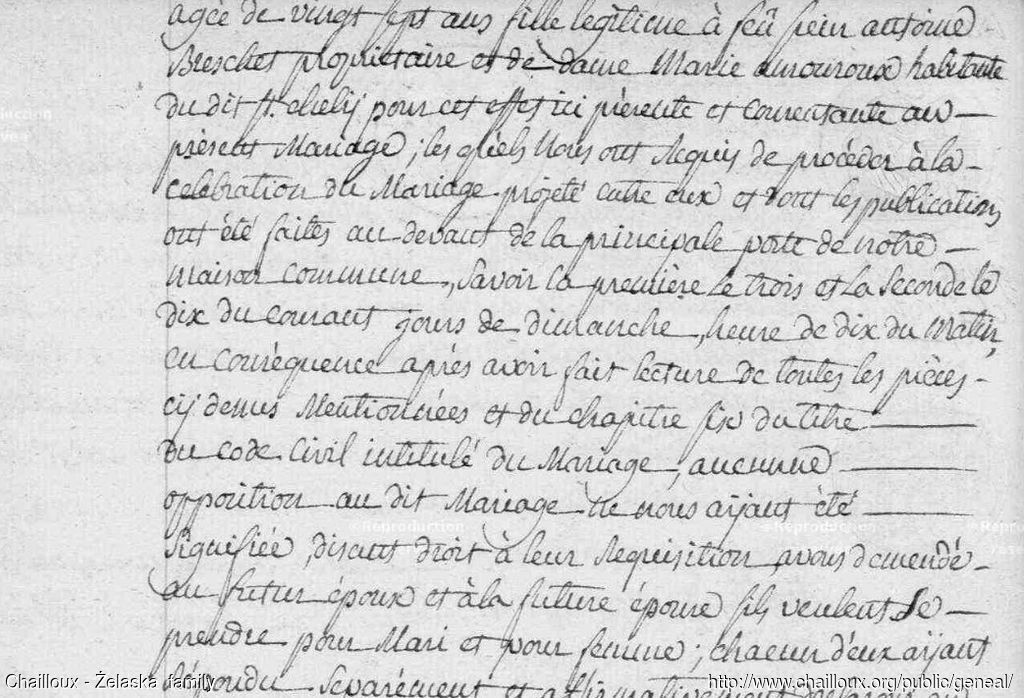 agée de vingt sept ans fille legitime à feû sieur antoine
Breschet propriétaire et de dame Marie auroroux habitante
du dit st. chelij pour cet effet ici présente et consentante au
présent Mariage; les quels Nous ont Requis de procéder à la
celebration du Mariage projeté entre eux et dont les publications
ont été faites au devant de la principale porte de notre
maison commune, Savoir la première Le trois et La Seconde le
dix du courant jours de dimanche, heure de dix du matin,
en conséquence après avoir fait lecture de toutes les pièces
cij dessus Mentionnées et du chapitre six du titre
du code Civil intitulé du Mariage, aucunne
opposition au dit Mariage Ne nous aijant été
Signifiée, disant droit à leur Requisition avons demendé
au futur époux et à la future épouse s'ils veulent Se
prendre pour Mari et pour femme; chacun d'eux aijant
Répondu Séparément et affirmativement
Chailloux - Żelaska family
http://www.chailloux.org/public/geneal/
© Reproduction
© Reproduction
© Reprodu